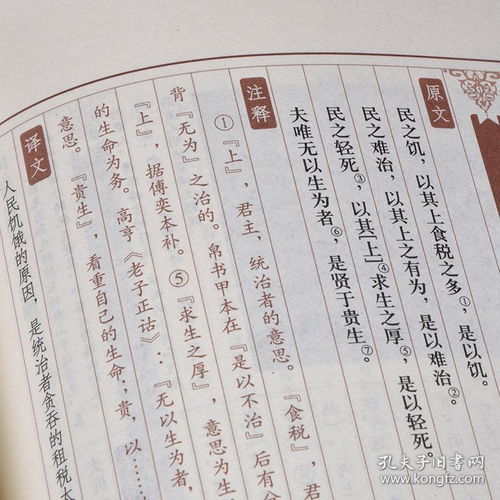 原文
民之饥，以其上食税之多①，是以饥。
民之难治，以其上之有为，是以难治②。
民之轻死③，以其「上」④求生之厚⑤，是以轻死。
夫唯无以生为者⑥，是贤于贵生⑦。
注释
①『上』，君主，统治者的意思。『食税』，君
背『无为』之治的。帛书甲本在『是以不治』后有分
『上』，据傅奕本补。⑤『求生之厚』，意思为生
的生命为务。高亨《老子正诂》：『无以生为者，
意思。『贵生』，看重自己的生命，贵，以……
译文
人民饥饿的原因，是统治者贪吞的租税太
孔夫子旧书网
www.kongfz.com